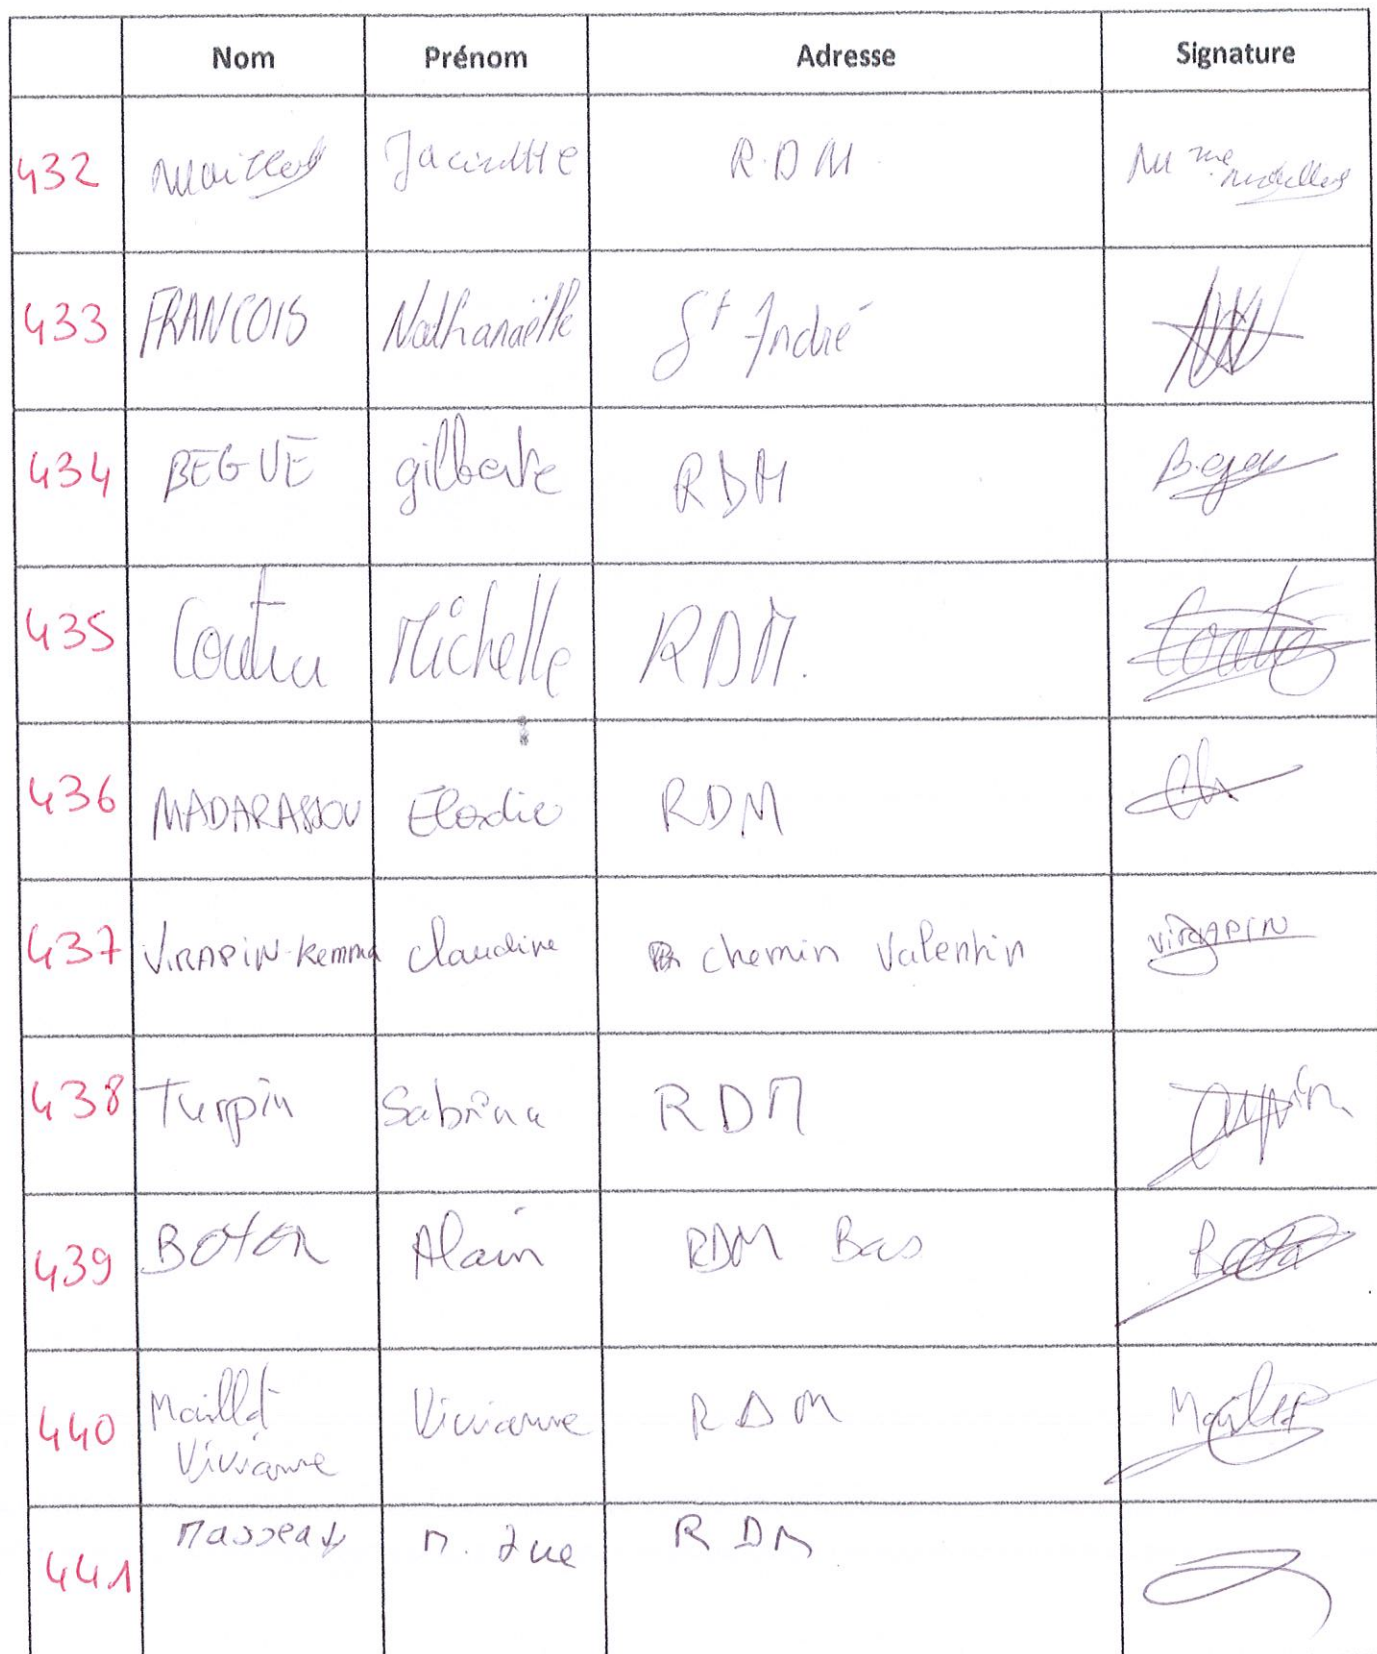 Nom Prénom Adresse Signature
432 Maillot Jacinthe R.D.M. Mme Maillot
433 FRANCOIS Nathanaëlle St André
434 BEGUE gilberte RDM Begue
435 Michelle RDM.
436 MADARASSOU Elodie RDM
437 VIRAPIN-Kemma claudine chemin Valentin VIRAPIN
438 Turpin Sabrina RDM Turpin
439 BOYER Alain RDM Bas
440 Maillot Vivianne RDM Maillot
Vivianne
441 RDM